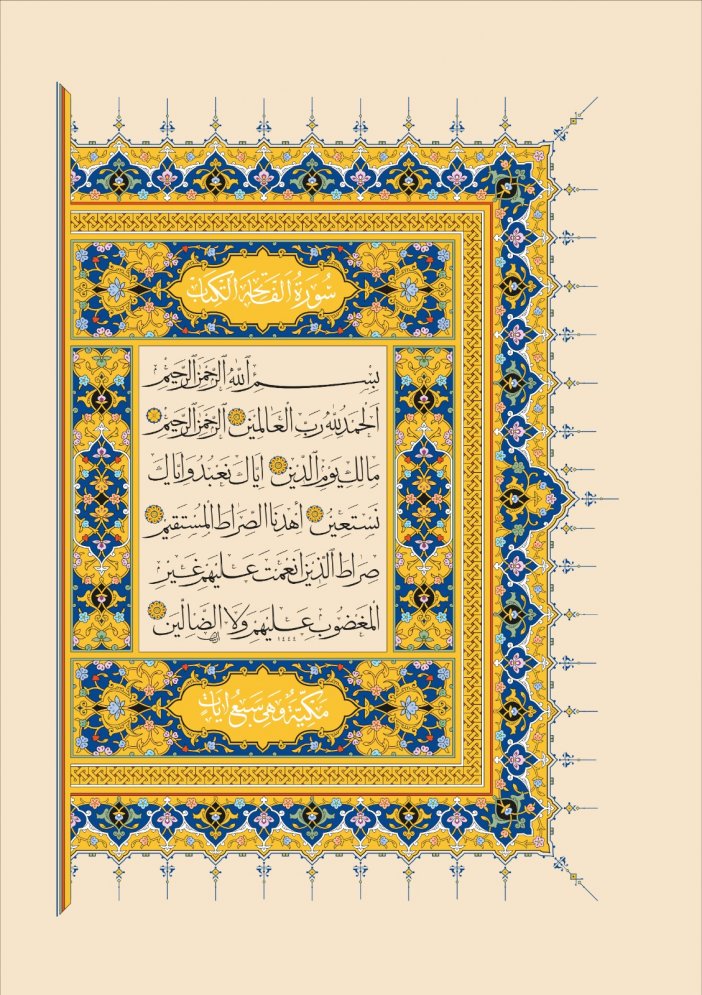 سورة الفاتحة الكتاب
بسم الله الرحمن الرحيم
الحمد لله رب العالمين الرحمن الرحيم
مالك يوم الدين اياك نعبد واياك
نستعين اهدنا الصراط المستقيم
صراط الذين انعمت عليهم غير
المغضوب عليهم ولا الضالين
١٤٤٤
مكية وهي سبع ايات